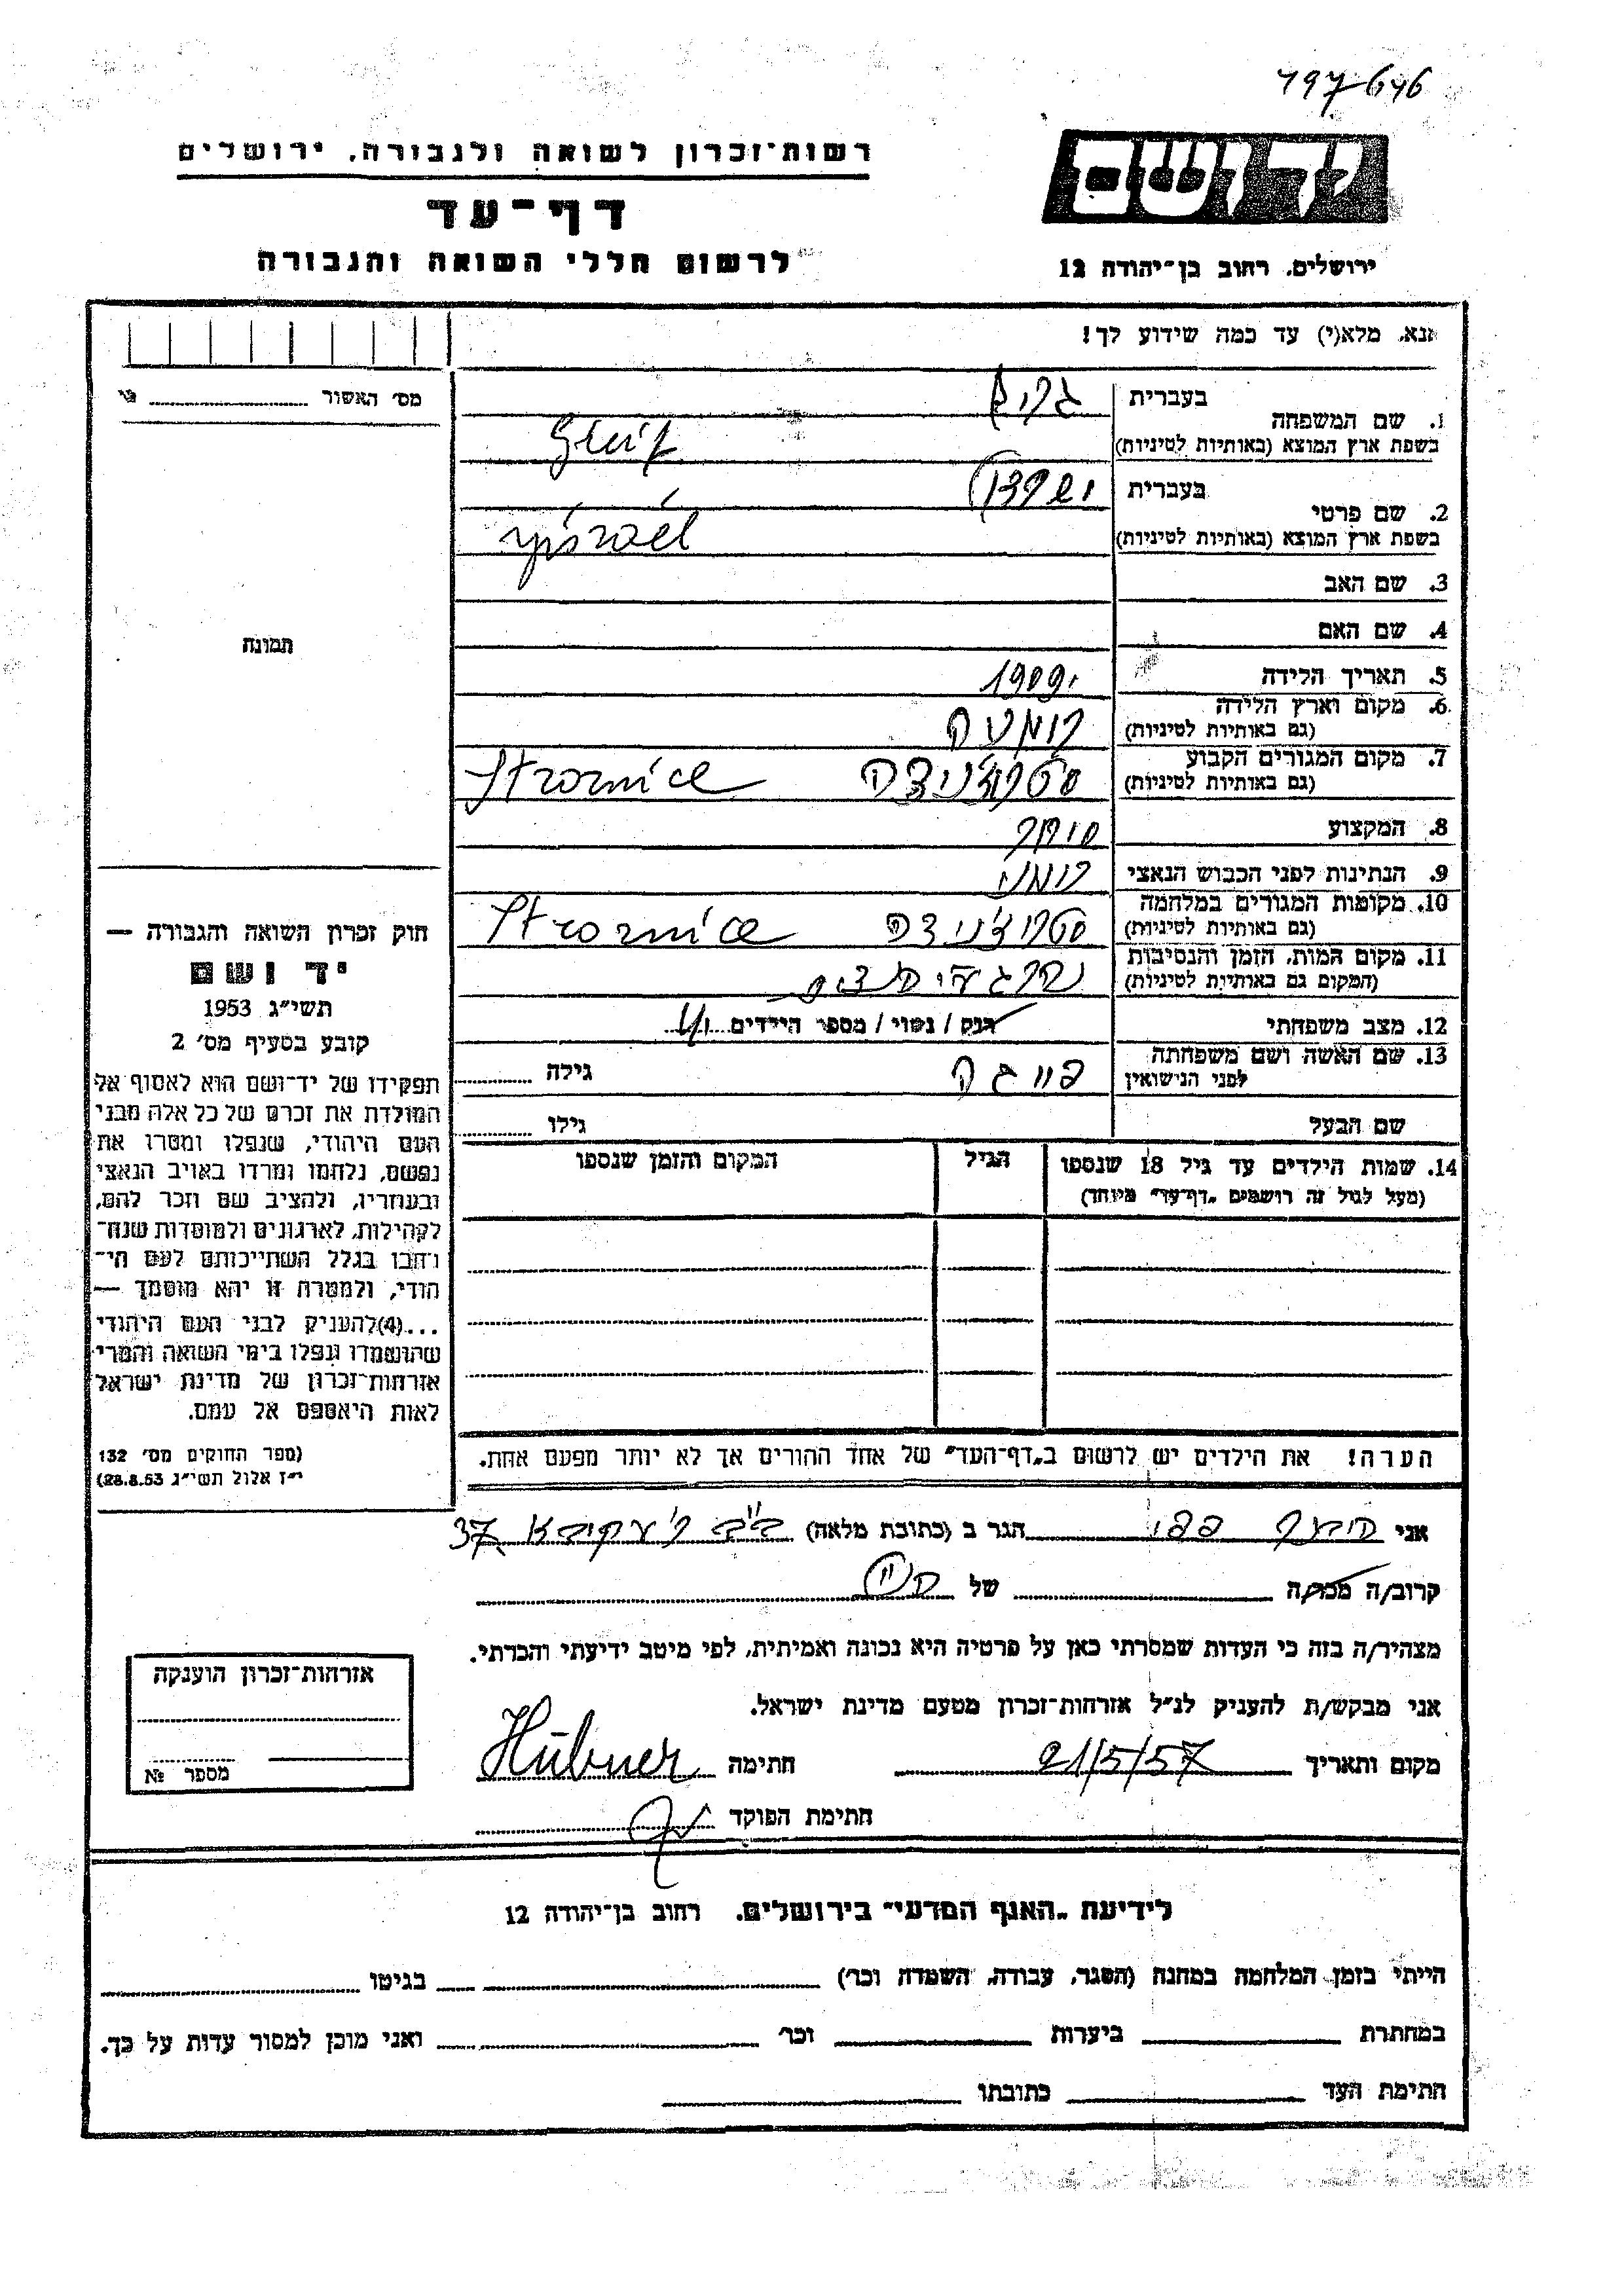 197646
יד ושם
רשות־זכרון לשואה ולגבורה, ירושלים
דף־עד
לרשום חללי השואה והגבורה
ירושלים, רחוב בן־יהודה 12
אנא, מלא(י) עד כמה שידוע לך!
מס׳ האשור
1. שם המשפחה
בעברית
בשפת ארץ המוצא (באותיות לטיניות)
2. שם פרטי
בעברית ישראל
בשפת ארץ המוצא (באותיות לטיניות) ysraél
3. שם האב
4. שם האם
5. תאריך הלידה 1909
6. מקום וארץ הלידה
(גם באותיות לטיניות)
7. מקום המגורים הקבוע סטרוז'ניצה Stroznice
(גם באותיות לטיניות)
8. המקצוע סוחר
9. הנתינות לפני הכבוש הנאצי רומני
10. מקומות המגורים במלחמה סטרוז'ניצה Stroznice
(גם באותיות לטיניות)
11. מקום המות, הזמן והנסיבות
(המקום גם באותיות לטיניות)
12. מצב משפחתי רווק / נשוי / מספר הילדים
13. שם האשה ושם משפחתה
לפני הנישואין פייגה גילה
שם הבעל גילו
14. שמות הילדים עד גיל 18 שנספו
(מעל לגיל זה רושמים „דף־עד״ מיוחד)
הגיל
המקום והזמן שנספו
הערה! את הילדים יש לרשום ב„דף־העד״ של אחד ההורים אך לא יותר מפעם אחת.
תמונה
חוק זכרון השואה והגבורה —
יד ושם
תשי״ג 1953
קובע בסעיף מס׳ 2
תפקידו של יד־ושם הוא לאסוף אל
המולדת את זכרם של כל אלה מבני
העם היהודי, שנפלו ומסרו את
נפשם, נלחמו ומרדו באויב הנאצי
ובעוזריו, ולהציב שם וזכר להם,
לקהילות, לארגונים ולמוסדות שנח־
רבו בגלל השתייכותם לעם הי־
הודי, ולמטרה זו יהא מוסמך —
...(4)להעניק לבני העם היהודי
שהושמדו ונפלו בימי השואה והמרי
אזרחות־זכרון של מדינת ישראל
לאות היאספם אל עמם.
(ספר החוקים מס׳ 132
י״ז אלול תשי״ג 28.8.53)
אני היבנר פפי הגר ב (כתובת מלאה) ב"ב ר' עקיבא 37
קרוב/ה מכר/ה של
מצהיר/ה בזה כי העדות שמסרתי כאן על פרטיה היא נכונה ואמיתית, לפי מיטב ידיעתי והכרתי.
אני מבקש/ת להעניק לנ״ל אזרחות־זכרון מטעם מדינת ישראל.
מקום ותאריך 21/5/57 חתימה Hübner
חתימת הפוקד
אזרחות־זכרון הוענקה
מספר №
לידיעת „האגף המדעי״ בירושלים, רחוב בן־יהודה 12
הייתי בזמן המלחמה במחנה (הסגר, עבודה, השמדה וכר׳) בגיטו
במחתרת ביערות וכר׳ ואני מוכן למסור עדות על כך.
חתימת העד כתובתו